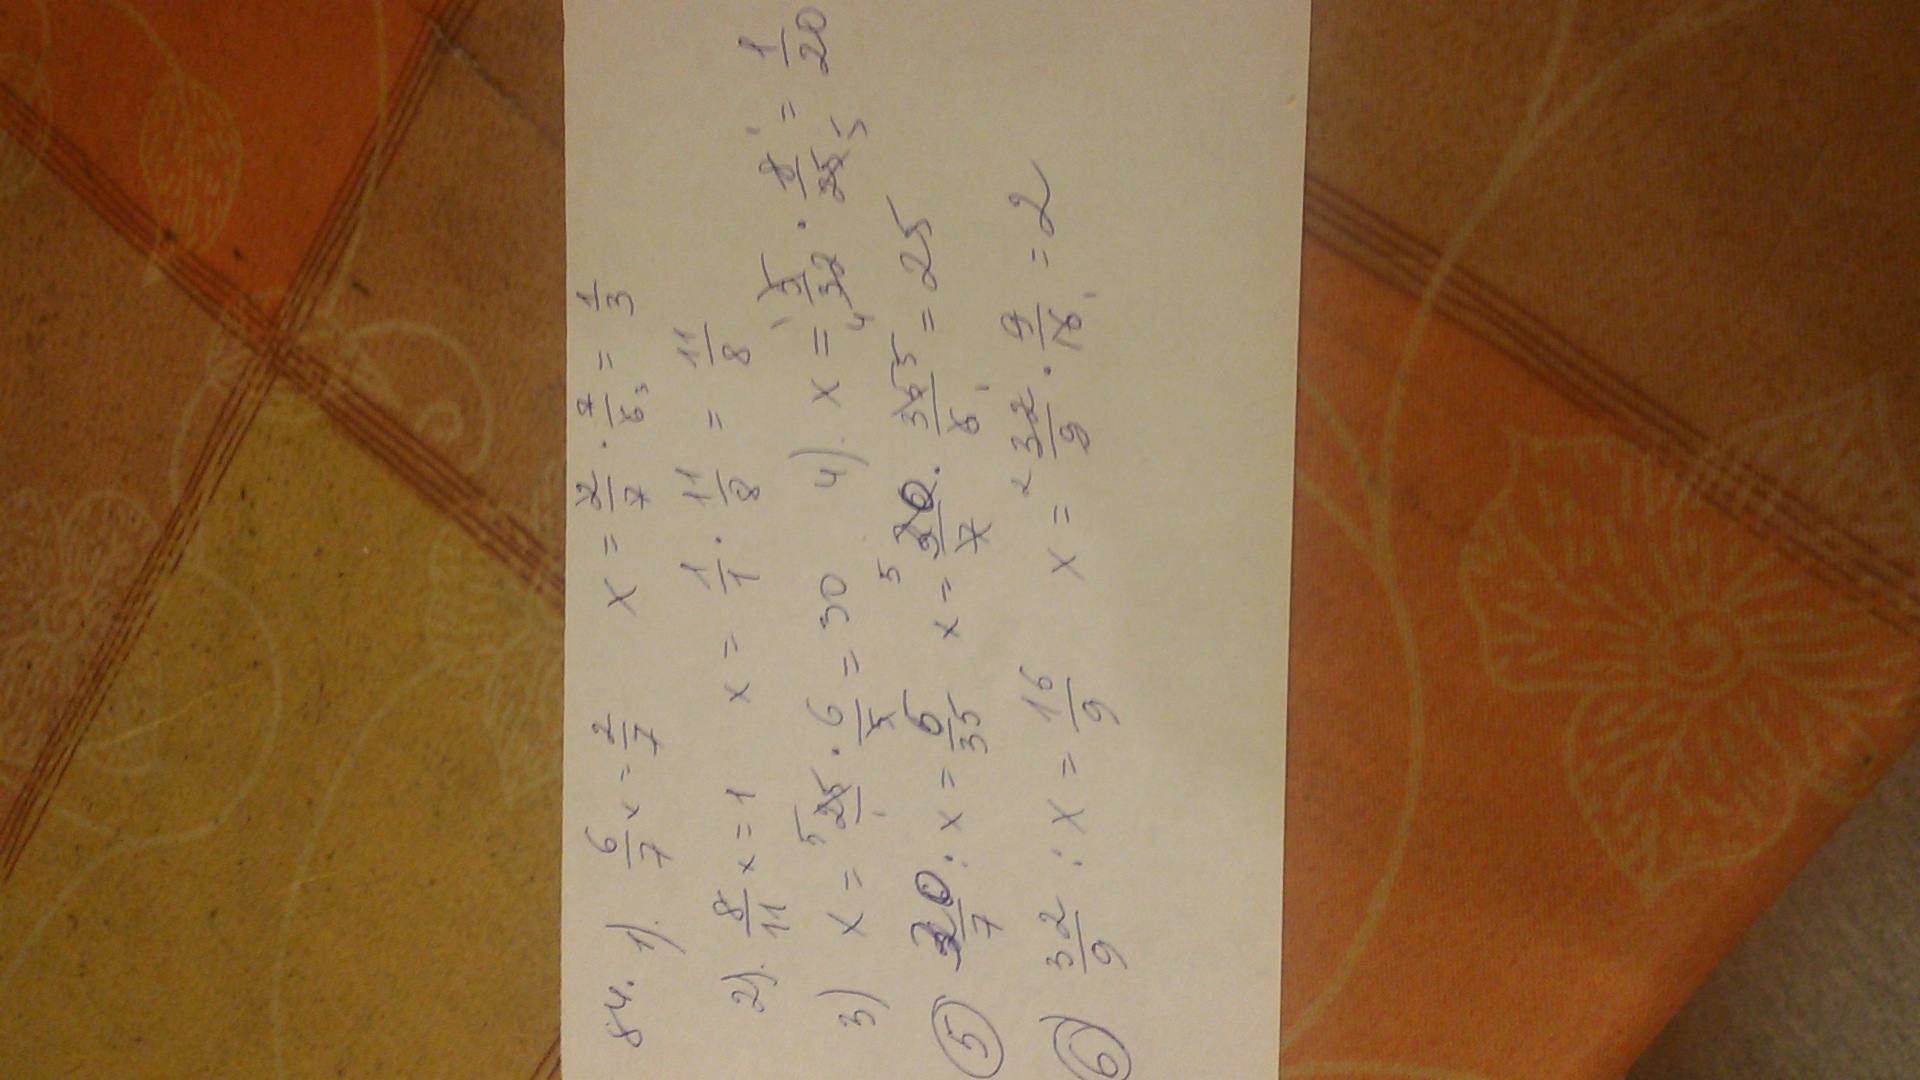 84. 1). 6/7 x = 2/7 x = 2/7 · 7/6 3 = 1/3
2). 8/11 x = 1 x = 1/1 · 11/8 = 11/8
3) x = 5 25/1 · 6/5 = 30 4). x = 1 5/32 4 · 8 1/25 5 = 1/20
5 30/7 : x = 6/35 x = 5 30/7 · 35 5/6 1 = 25
6 32/9 : x = 16/9 x = 2 32/9 · 9/16 1 = 2